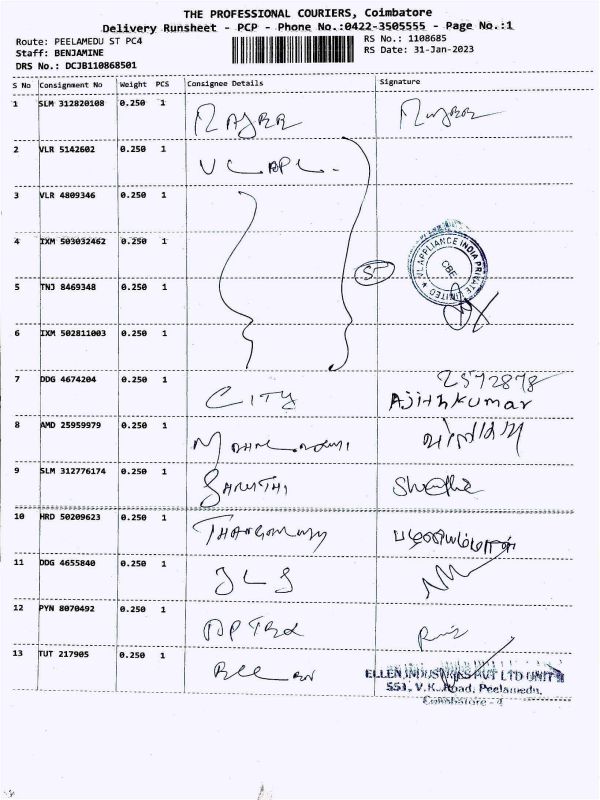 THE PROFESSIONAL COURIERS, Coimbatore
Delivery Runsheet - PCP - Phone No.:0422-3505555 - Page No.:1
Route: PEELAMEDU ST PC4
RS No.: 1108685
Staff: BENJAMINE
RS Date: 31-Jan-2023
DRS No.: DCJB110868501
S No Consignment No Weight PCS Consignee Details Signature
1 SLM 312820108 0.250 1
2 VLR 5142602 0.250 1
3 VLR 4809346 0.250 1
4 IXM 503032462 0.250 1
VL APPLIANCE INDIA PRIVATE LIMITED
CBE
5 TNJ 8469348 0.250 1
6 IXM 502811003 0.250 1
7 DDG 4674204 0.250 1 CITY 2572878
Ajithkumar
8 AMD 25959979 0.250 1
9 SLM 312776174 0.250 1
10 HRD 50209623 0.250 1
11 DDG 4655840 0.250 1
12 PYN 8070492 0.250 1
13 TUT 217905 0.250 1
ELLEN INDUSTRIES PVT LTD UNIT
551, V.K. Road, Peelamedu,
Coimbatore - 4